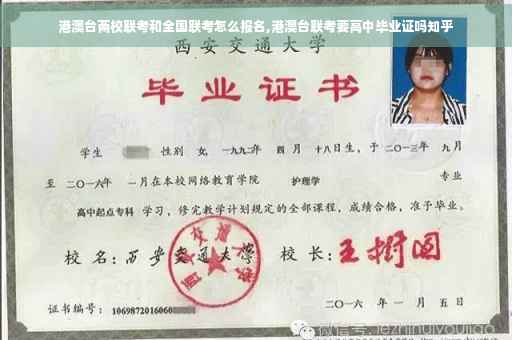 港澳台两校联考和全国联考怎么报名,港澳台联考要高中毕业证吗知乎
西安交通大学
毕业证书
学生 性别 女, 一九九二年 四月 十八日生, 于二〇一三年 九月
至 二〇一六年 一月在本校网络教育学院 护理学 专业
高中起点专科 学习, 修完教学计划规定的全部课程, 成绩合格, 准予毕业。
校名: 西安交通大学 校长: 王树国
西安交通大学
证书编号: 1069872016060
二〇一六年 一月 五日
微信号: jezhinuiyoujiao